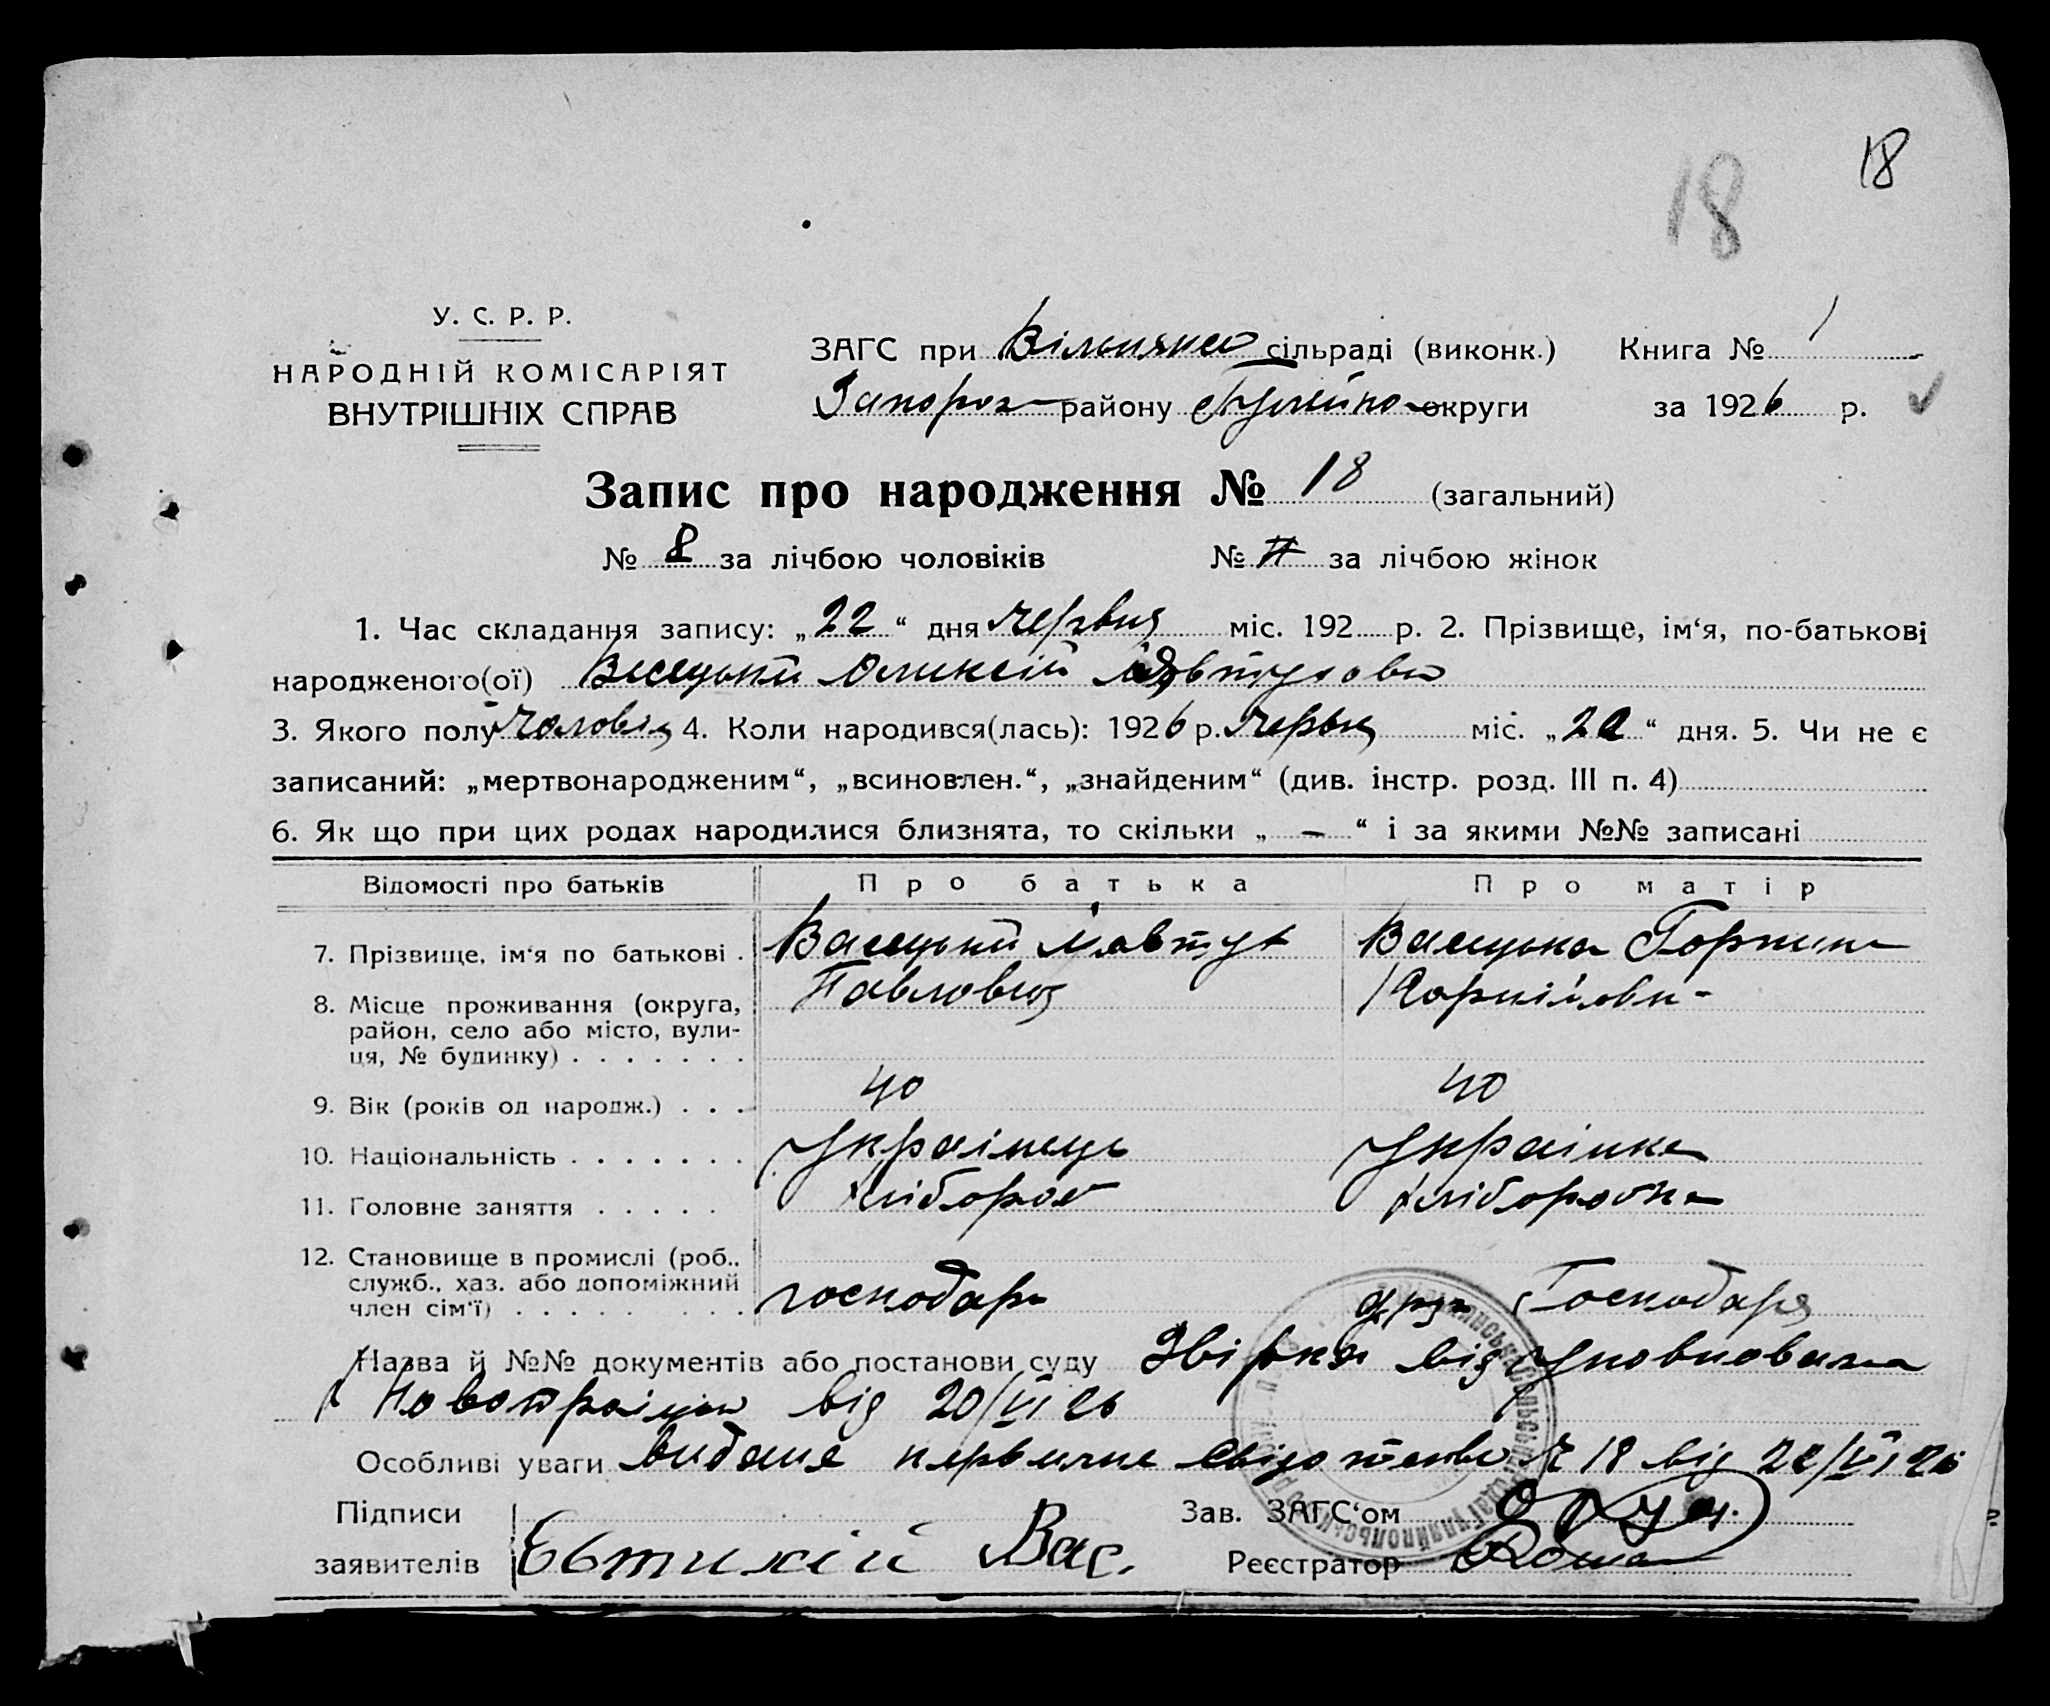 18
18
У. С. Р. Р.
НАРОДНІЙ КОМІСАРІЯТ
ВНУТРІШНІХ СПРАВ
ЗАГС при сільраді (виконк.) Книга № 1
Запороз району Гуляйпо округи за 1926 р.
Запис про народження № 18 (загальний)
№ 8 за лічбою чоловіків № за лічбою жінок
1. Час складання запису: „22“ дня червня міс. 192 р. 2. Прізвище, ім‘я, по-батькові
народженого(ої) Васецький Олексій Явтухови
3. Якого полу Чолович 4. Коли народився(лась): 1926 р. червня міс. „ “ дня. 5. Чи не є
записаний: „мертвонародженим“, „всиновлен.“, „знайденим“ (див. інстр. розд. III п. 4)
6. Як що при цих родах народилися близнята, то скільки „ – “ і за якими №№ записані
Відомості про батьків Про батька Про матір
7. Прізвище, ім‘я по батькові . Васецький Явтух Васецька Горпина
Павлович Корніївн-
8. Місце проживання (округа,
район, село або місто, вули-
ця, № будинку) . . . . . . .
9. Вік (років од народж.) . . . 40 40
10. Національність . . . . . . . Українець Українка
11. Головне заняття . . . . . хлібороб хліборобка
12. Становище в промислі (роб..
служб., хаз. або допоміжний
член сім‘ї) . . . . . . . . господарь друж Господаря
Назва й №№ документів або постанови суду від уповноважен
Новотроїцьк від 20/VI 26
Особливі уваги видане первичне свідотство № 18 від 22/VI 26
Підписи Зав. ЗАГС‘ом
заявителів Євтихій Вас. Реєстратор